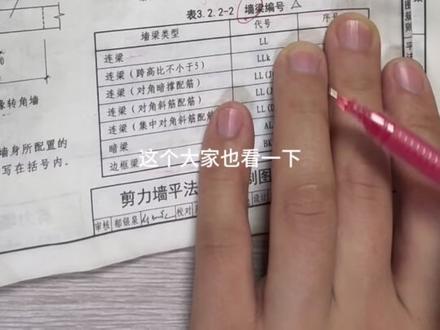 表3.2.2-2 墙梁编号
墙梁类型 代号 序
连梁 LL
连梁(跨高比不小于5) LL
连梁(对角暗撑配筋) LL(J
连梁(对角斜筋配筋) LL(J
连梁(集中对角斜筋配筋 LL(D
暗梁 AL
边框梁 BK
缘转角墙
墙身所配置的
写在括号内。
这个大家也看一下
剪力墙平法 制图
审核 郁银泉 校对 设计